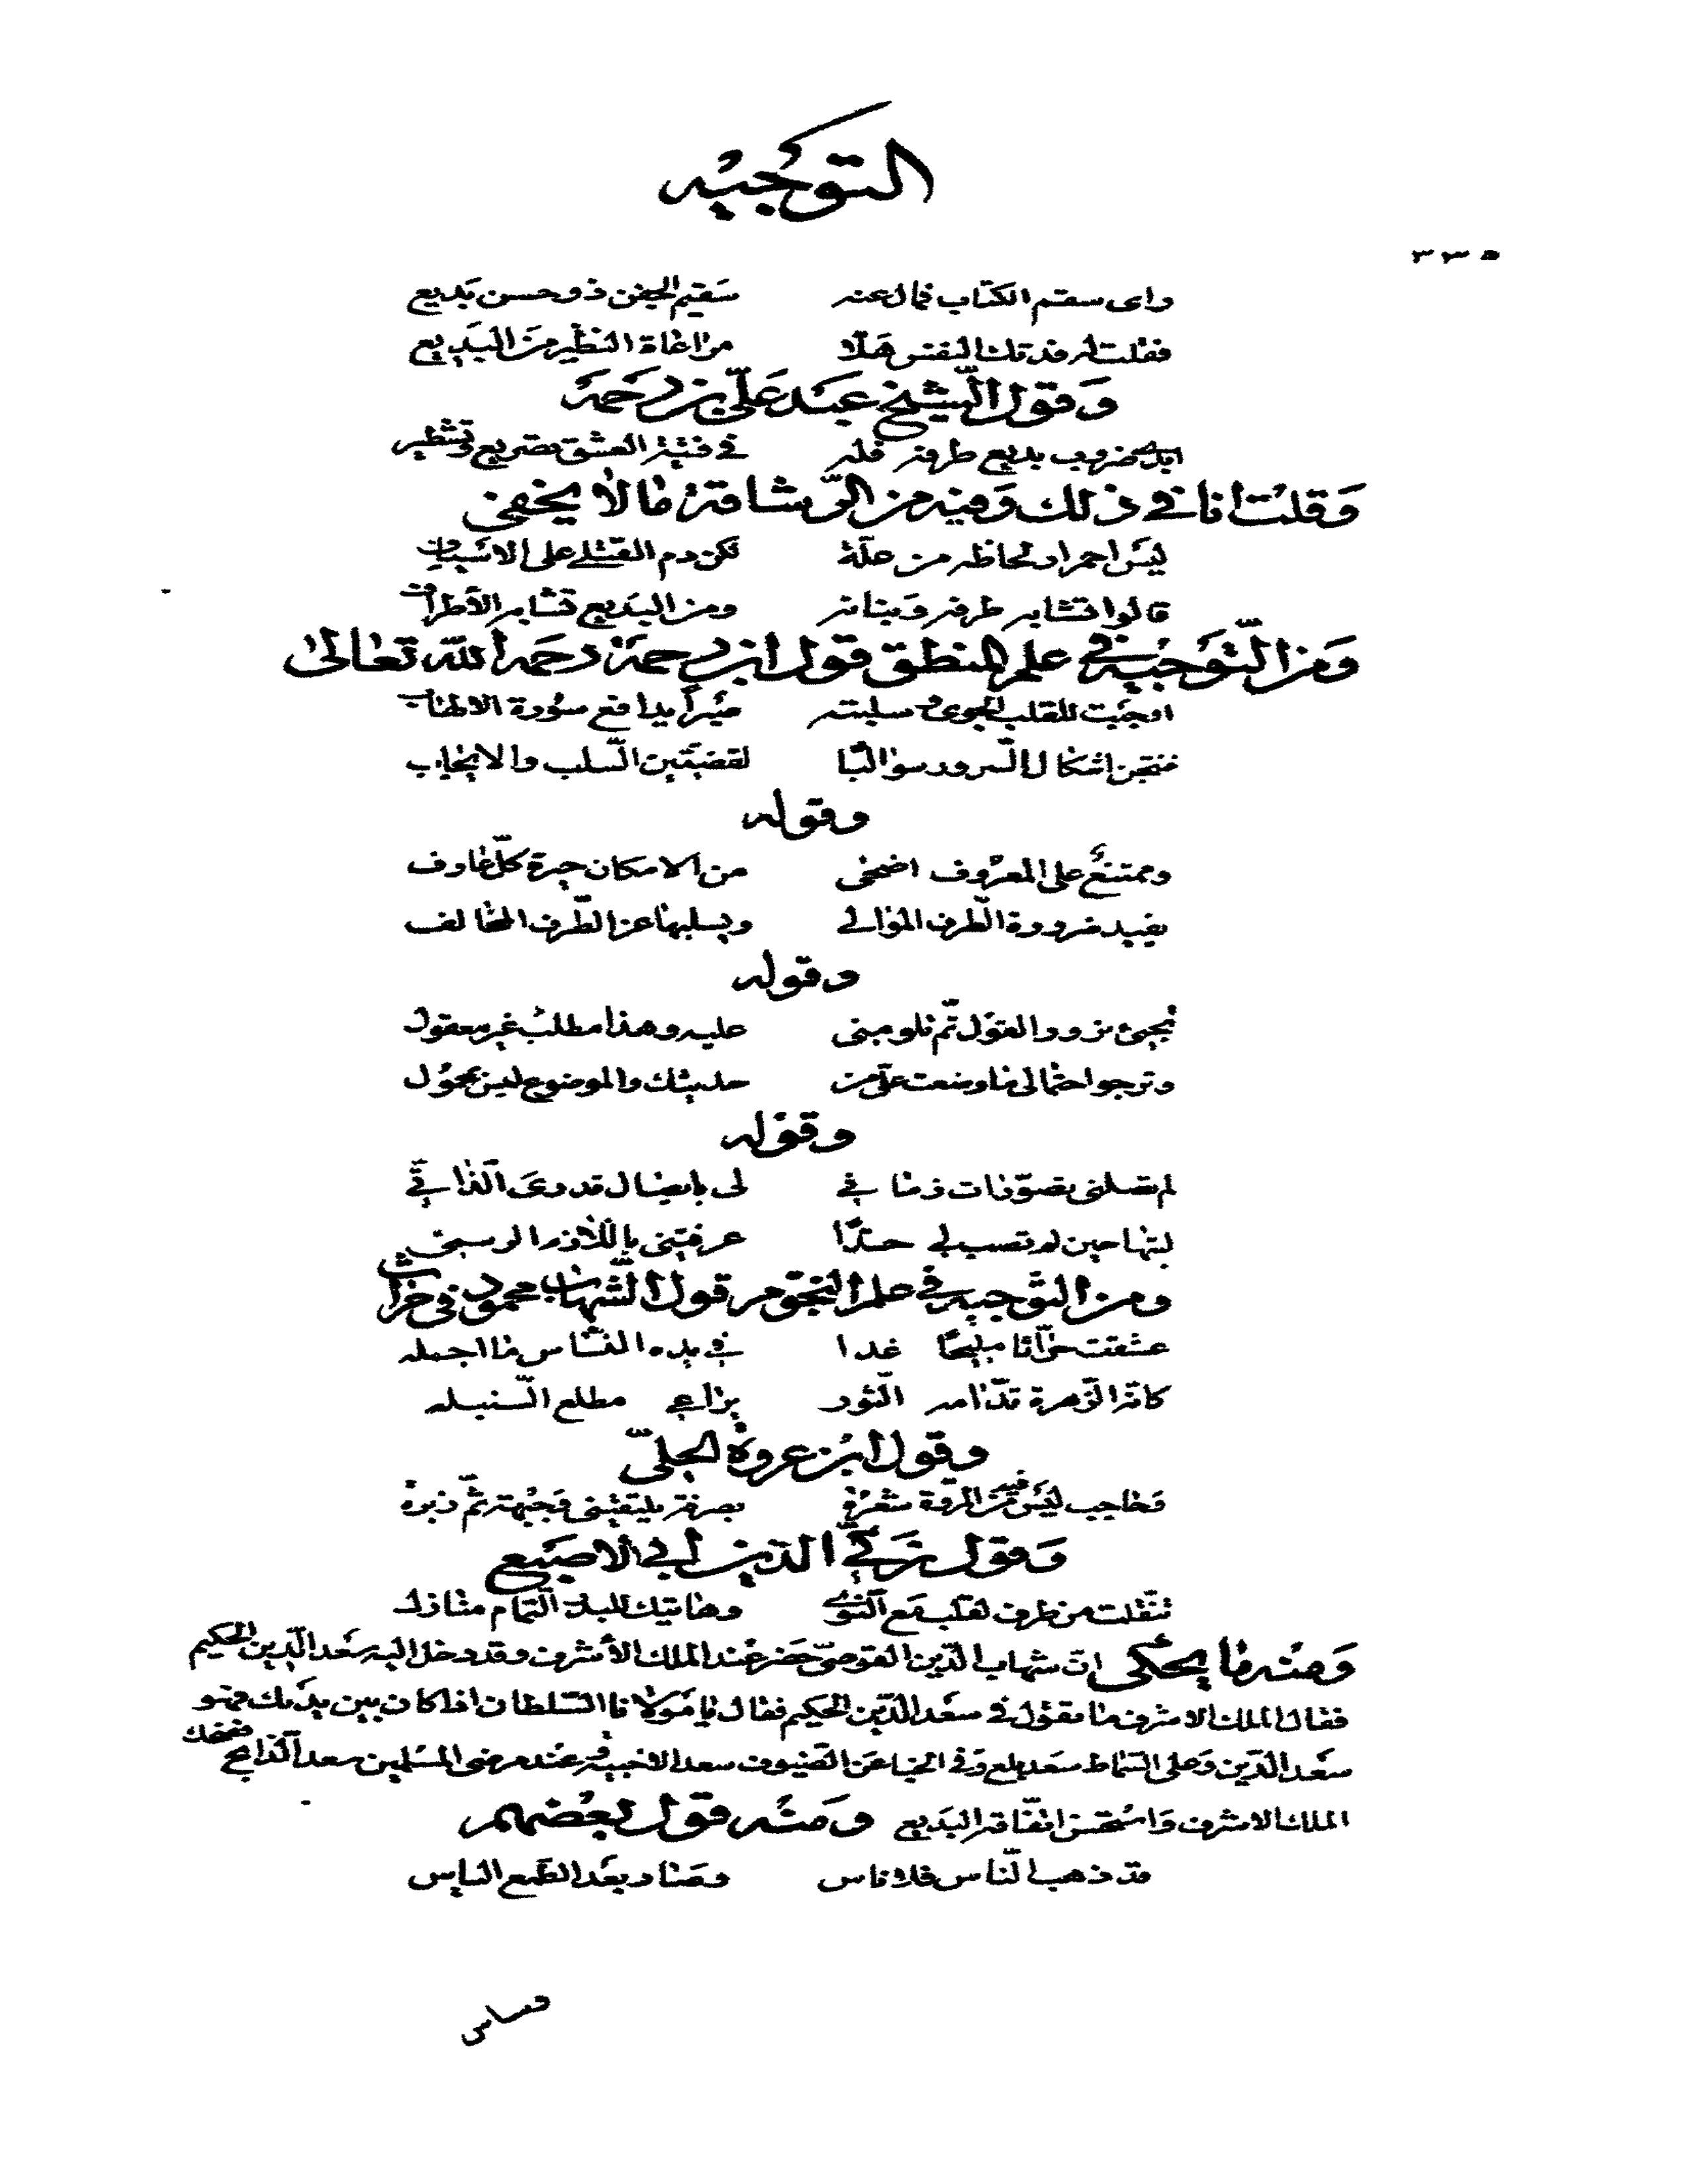 التوجيه
٣٣٥
رأى سقم الكتاب فمال عنه سقيم الجفن ذو حسن بديع
فقلت له فدتك النفس هلا مراعاة النظير من البديع
وقول الشيخ عبد علي بن رحمة
في فتية العشق تصريع وتشطير
وقلت انا في ذلك وفيه من الرشاقة ما لا يخفى
ليس احمرار لحاظه من علة لكن دم القتلى على الاسياف
قالوا تشابه طرفه وبنانه ومن البديع تشابه الأطراف
ومن التوجيه في علم المنطق قول ابن رحمة رحمه الله تعالى
اوجبت للقلب الجوى وسلبته
لقضيتين السلب والايجاب
وقوله
وممتنع على المعروف اضحى من الامكان حيرة كل عارف
يفيد ضرورة الطرف الموالي ويسلبها عن الطرف المخالف
وقوله
عليه وهذا مطلب غير معقول
وترجو احتمالي ما وضعت علي من حديثك والموضوع ليس بمحمول
وقوله
لم تصلني بتصورات زماني لي بايصال قد دعى الذاتي
ليتها حين لم تصب لي حدا عرفتني باللازم الرسمي
ومن التوجيه في علم النجوم قول الشهاب محمود في حراث
عشقت حراثا مليحا غدا في يده المساس ما اجمله
كانه الزهرة قدامه الثور يراعي مطلع السنبله
وقول ابن عروة الحلي
وحاجب ليس فيه من المروة شعرة بصرفة يلتقيني وجبهة ثم زبرة
وقول زكي الدين ابي الاصبع
تنقلت من طرف لقلب مع النوى وهاتيك للبدر التمام منازل
ومنه ما يحكى ان شهاب الدين القوصي حضر عند الملك الأشرف وقد دخل اليه سعد الدين الحكيم
فقال الملك الاشرف ما تقول في سعد الدين الحكيم فقال يا مولانا السلطان اذا كان بين يديك فهو
سعد الدين وعلى السماط سعد بلع وفي الخباء عن الضيوف سعد الاخبية وعند مرضى المسلمين سعد الذابح فضحك
الملك الاشرف واستحسن اتفاقه البديع ومنه قول بعضهم
قد ذهب الناس فلا ناس وصار بعد الطمع الياس